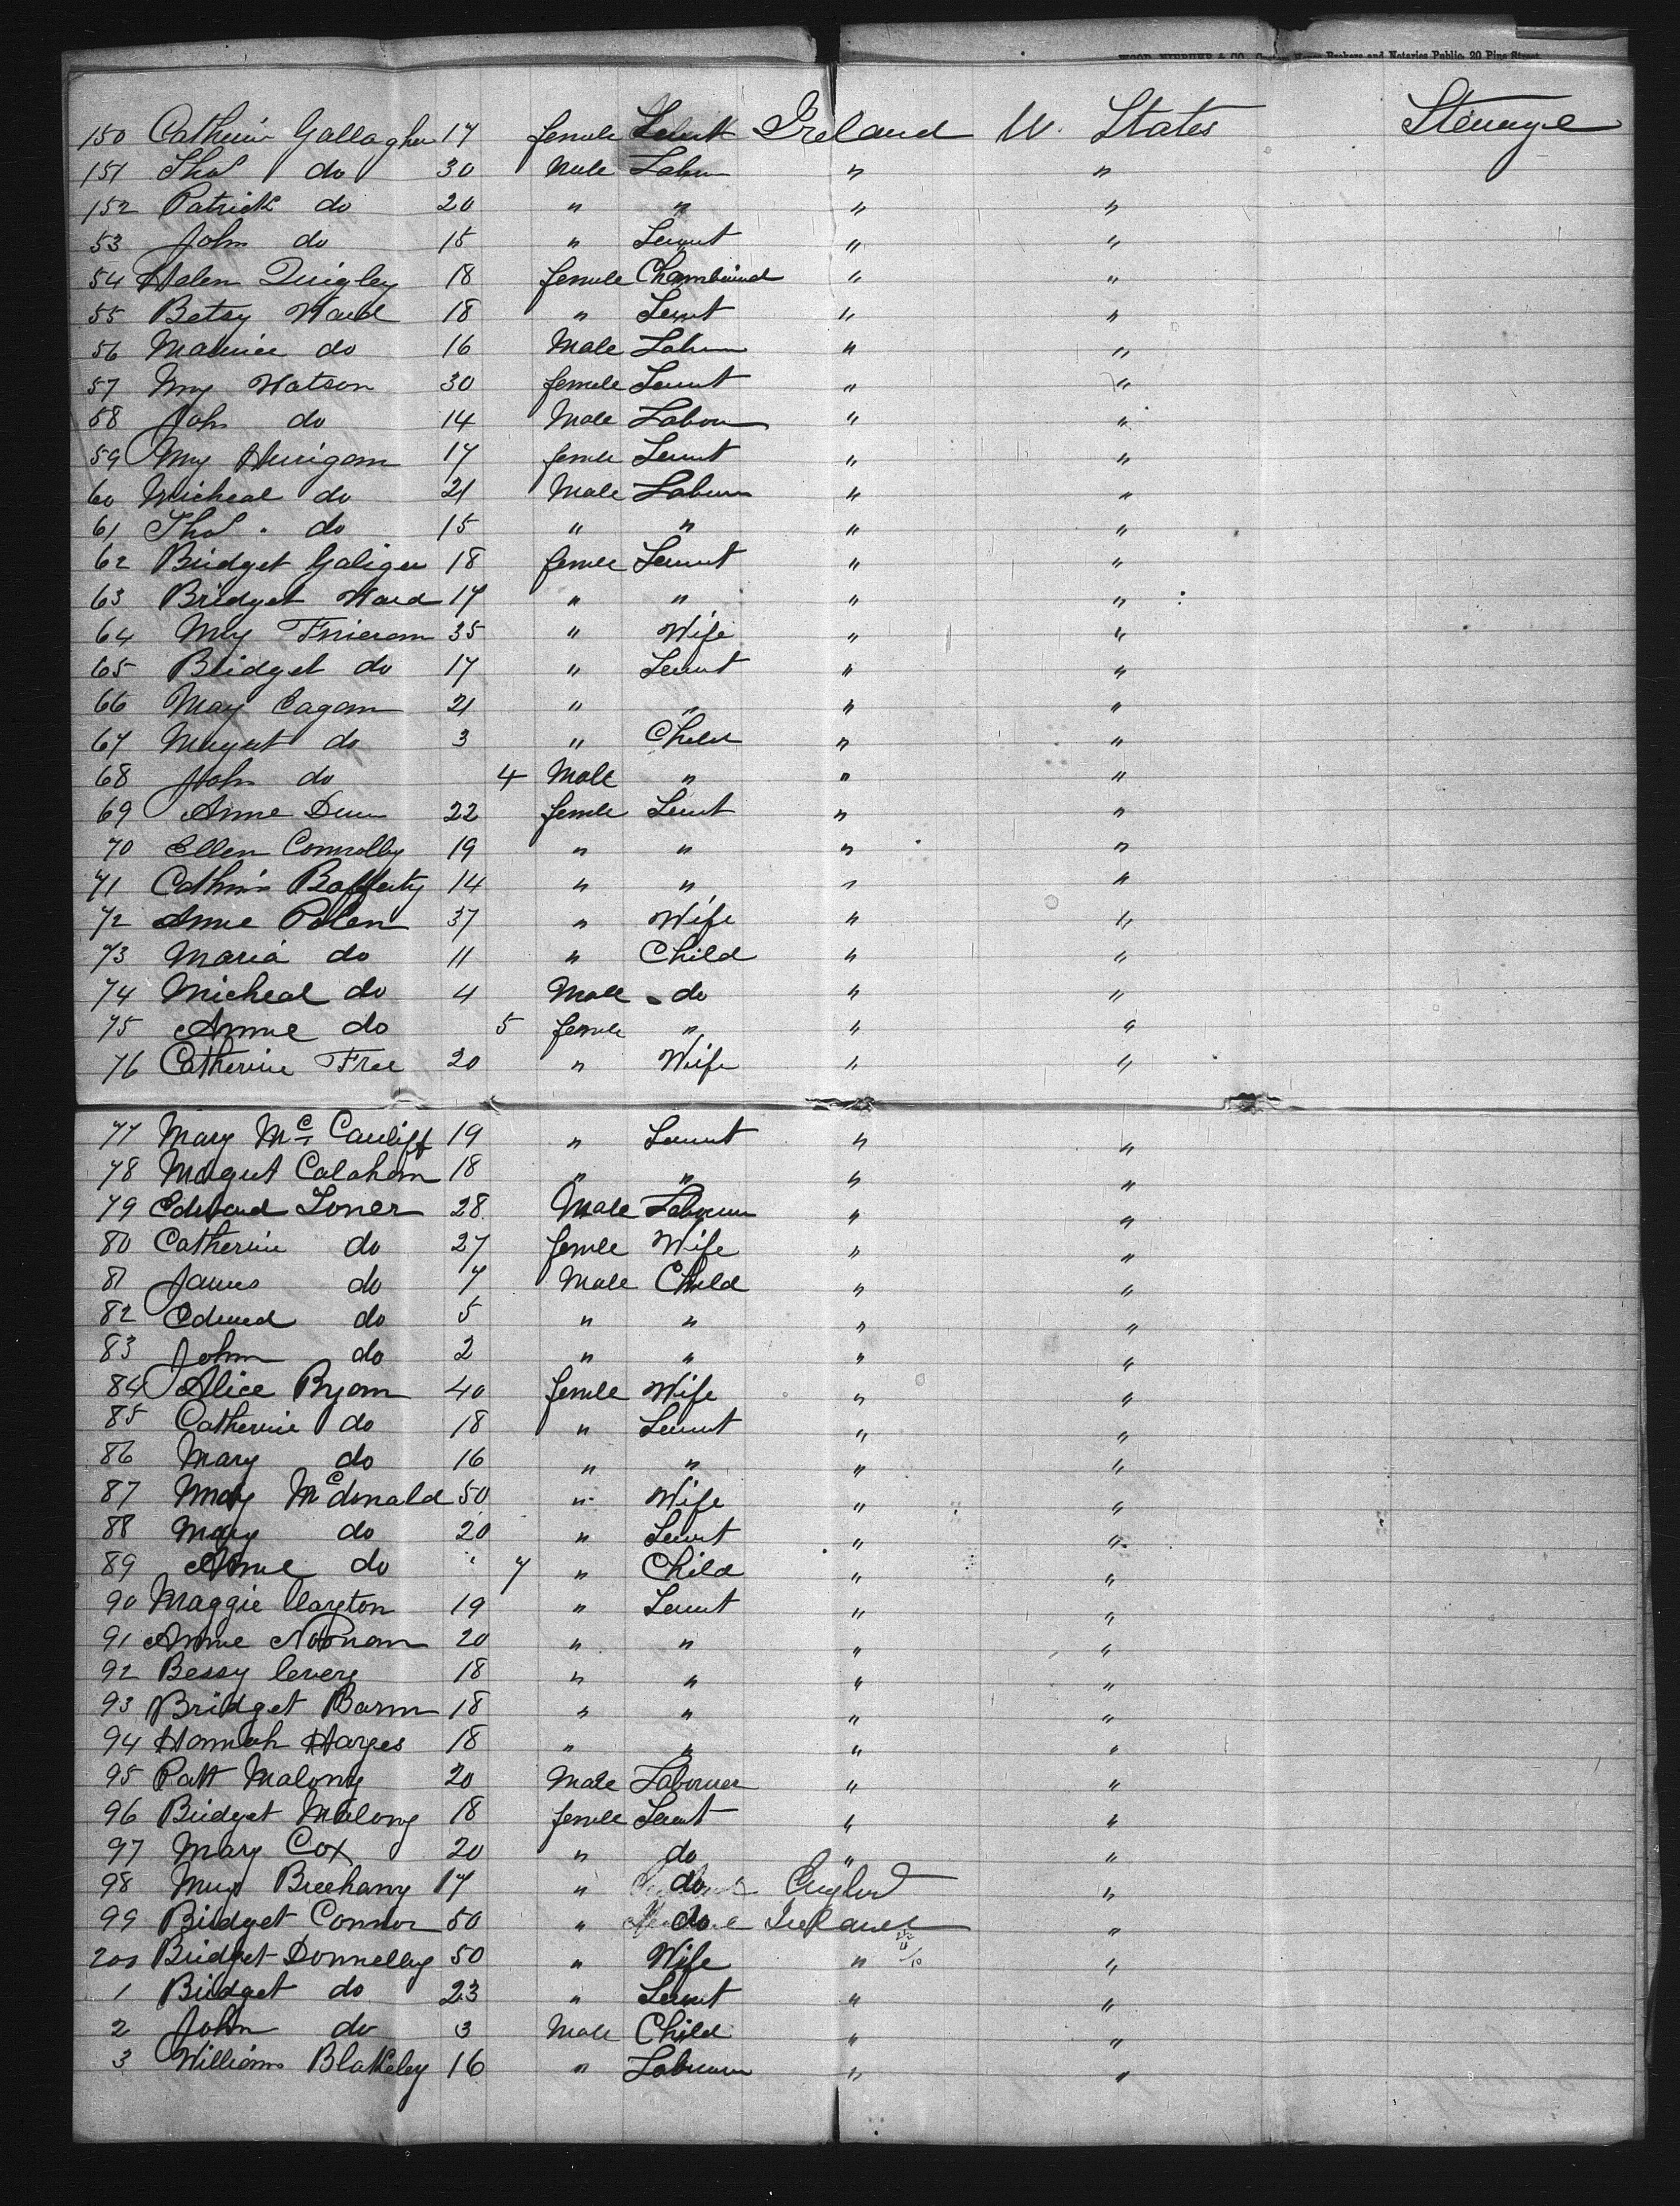 WOOD, NIEBUHR & CO. Custom House Brokers and Notaries Public, 20 Pine Street
150 Catherin Gallagher 17 female Servt Ireland U. States Steerage
151 Thos do 30 Male Labur " "
152 Patrick do 20 " " " "
53 John do 15 " Servnt " "
54 Helen Quigley 18 female Chambmaid " "
55 Betsy Ward 18 " Servt " "
56 Maurice do 16 Male Labur " "
57 My Watson 30 female Servnt " "
58 John do 14 Male Labour " "
59 My Herrigan 17 female Servnt " "
60 Micheal do 21 Male Labur " "
61 Thos do 15 " " " "
62 Bridget Galiger 18 female Servnt " "
63 Bridget Ward 17 " " " "
64 My 35 " Wife " "
65 Bridget do 17 " Servnt " "
66 May Eagan 21 " " " "
67 Magret do 3 " Child " "
68 John do 4 Male " " "
69 Anne Dunn 22 female Servt " "
70 Ellen Connolly 19 " " " "
71 Cathrin Rafferty 14 " " " "
72 Anne Polen 37 " Wife " "
73 Maria do 11 " Child " "
74 Micheal do 4 Male do " "
75 Annie do 5 female " " "
76 Catherine Free 20 " Wife " "
77 Mary Mc Cauliff 19 " Servnt " "
78 Magret Calahan 18 " " " "
79 Edward Toner 28 Male Labourer " "
80 Catherine do 27 female Wife " "
81 James do 7 Male Child " "
82 Edward do 5 " " " "
83 John do 2 " " " "
84 Alice Ryan 40 female Wife " "
85 Catherine do 18 " Servnt " "
86 Mary do 16 " " " "
87 Mary Mcdonald 50 " Wife " "
88 Mary do 20 " Servt " "
89 Anne do 7 " Child " "
90 Maggie Clayton 19 " Servnt " "
91 Annie Noonan 20 " " " "
92 Bessy Cevery 18 " " " "
93 Bridget Barnn 18 " " " "
94 Hannah Harges 18 " " " "
95 Patt Malony 20 Male Labourer " "
96 Bridget Malony 18 female Servnt " "
97 Mary Cox 20 " do " "
98 Mary Breehany 17 " do England "
99 Bridget Connor 50 " do Ireland "
200 Bridget Donnelly 50 " Wife " "
1 Bridget do 23 " Servnt " "
2 John do 3 Male Child " "
3 William Blakeley 16 " Labourer " "